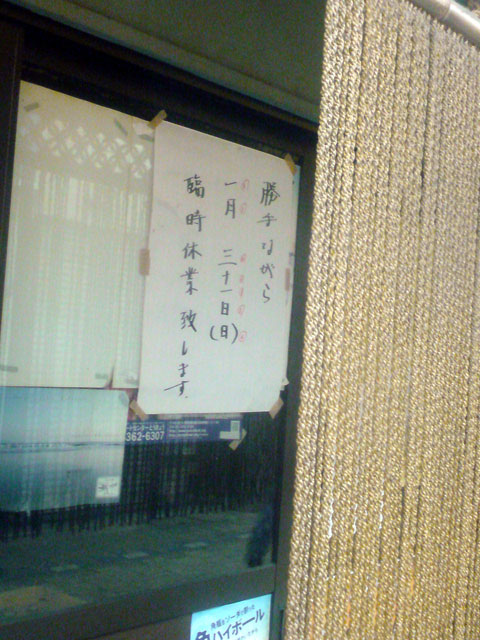 勝手ながら
一月 三十一日(日)
臨時休業致します。
362-6307
角ハイボール